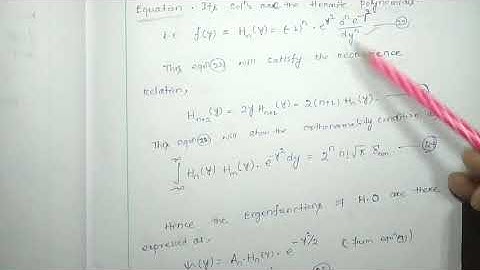 Equation. Its sol's are the Hermite Polynomials
i.e f(y) = Hn(y) = (-1)^n . e^{y^2} d^n e^{-y^2} / dy^n
This eqn will satisfy the recurrence
relation,
H_{n+2} = 2y H_{n+1}(y) = 2(n+1) Hn(y).
This eqn will show the orthonormality condition
∫ Hn(y) Hm(y) . e^{-y^2} dy = 2^n n! √π δ
Hence the Eigenfunctions of H.O are there
expressed as,
ψn(y) = An . Hn(y) . e^{-y^2/2} (from eqn